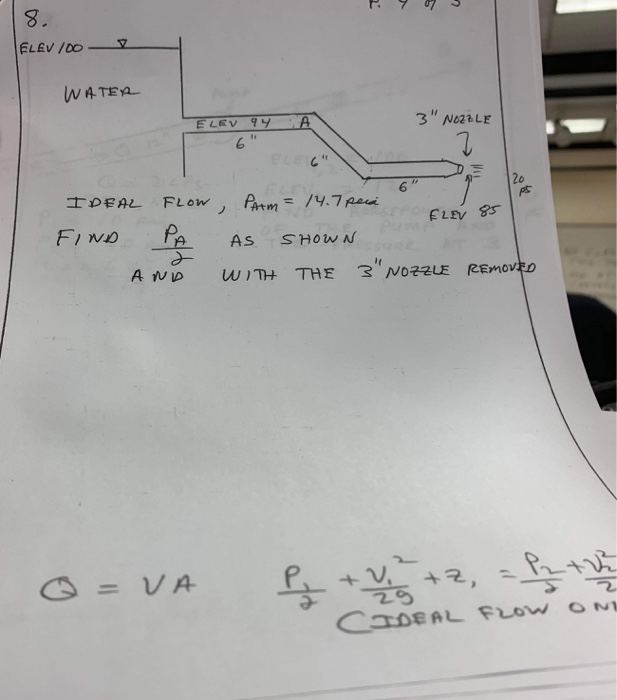 8.
P. 4 of 5
ELEV 100
WATER
ELEV 94 A
3" NOZZLE
6"
6"
6"
20
pts
ELEV 85
IDEAL FLOW, Patm = 14.7 psi
FIND PA/γ AS SHOWN
AND WITH THE 3" NOZZLE REMOVED
Q = VA
P1/γ + V1²/2g + Z1 = P2/γ + V2²/2
(IDEAL FLOW ON